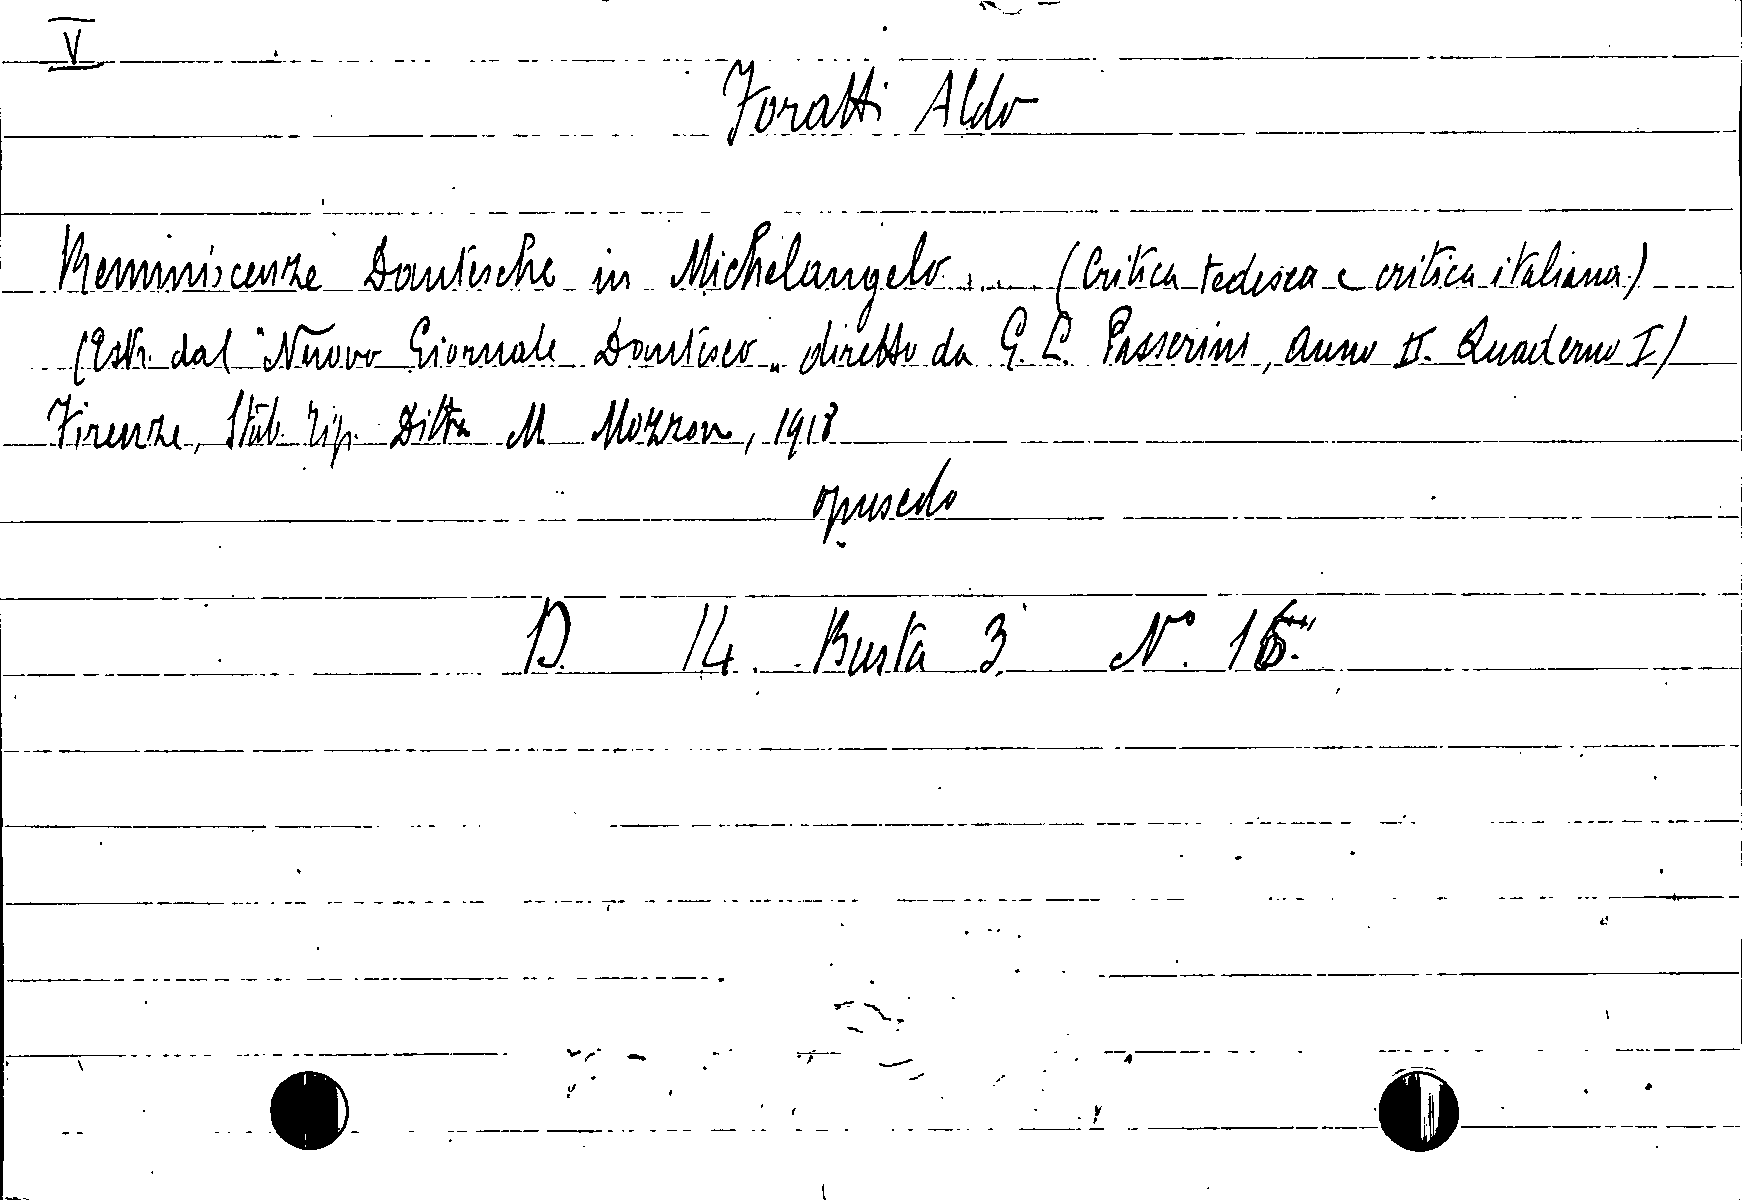 V
Foratti Aldo
Reminiscenze Dantesche in Michelangelo... (Critica tedesca e critica italiana)
(Estr. dal "Nuovo Giornale Dantesco„ diretto da G. L. Passerini, anno II. Quaderno I)
Firenze, Stab. Tip. Ditta M Mozzon, 1918
opuscolo
D. 14. Busta 3. N°. 16.